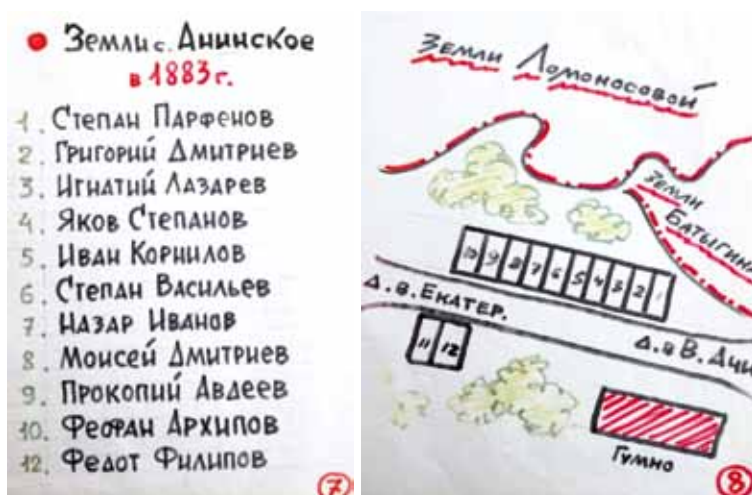 Земли с. Анинское
в 1883 г.
1. Степан Парфенов
2. Григорий Дмитриев
3. Игнатий Лазарев
4. Яков Степанов
5. Иван Корнилов
6. Степан Васильев
7. Назар Иванов
8. Моисей Дмитриев
9. Прокопий Авдеев
10. Феофан Архипов
12. Федот Филипов
7
Земли Ломоносовой
Земли
Батыгина
10 9 8 7 6 5 4 3 2 1
Д. в. Екатер.
Д. в В. Ачи
11 12
Гумно
8